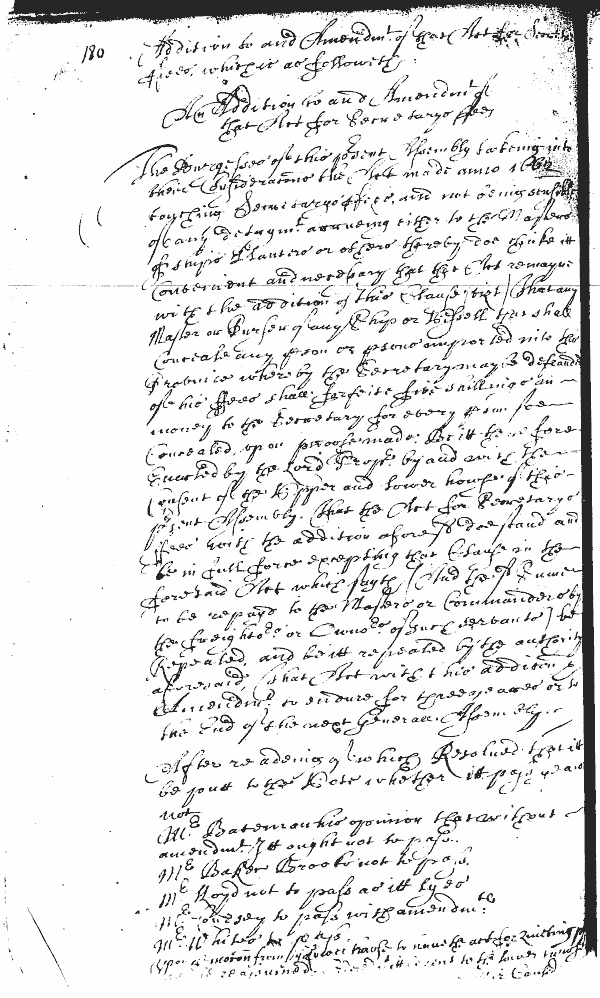 180
Addition to and Amendmt. of that Act for Secretarys
ffees, which is as followeth
An Addition to and Amendmt. of
that Act for Secretarys ffees
The Burgesses of this present Assembly takeing into
their Consideracons the Act made anno 16
touching Secretarys ffees, and not being sensible
of any detrymt. accrueing either to the Masters
of shipps Planters or others thereby doe thinke itt
Convenient and necessary that the Act remayne
with the addition of this Clause (vizt) That any
Master or Purser of any Ship or Vessell that shall
Conceale any pson or psons imported into this
Province whereby the Secretary may be defrauded
of his ffees shall forfeite five shillings in
money to the Secretary for every pson soe
Concealed, upon proofe made. Be itt therefore
Enacted by the Lord Propry. by and with the
Consent of the Upper and lower howse of this
psent Assembly. That the Act for Secretarys
ffees with the addition aforesd. doe stand and
be in full force excepting that Clause in the
foresaid Act which sayth (And the sd. Summe
to be repayd to the Masters or Commanders by
the freightors. or Owners. of such servants) be
Repealed, and be itt repealed by the authority
aforesaid, That Act with this addition &
Amendmt. to endure for three yeares or to
the End of the next Generall Assembly.
After readeing of which Resolved that itt
be putt to the Vote whether itt pass yea or
not
Mr. Bateman his opinion that without
amendmt. Itt ought not to pass.
Mr. Baker Brooke not to pass.
Mr. Lloyd not to pass as itt lyes
Mr. to pass with amendmts.
Mr. White to pass.
Upon a motion from lower howse to have the act for
sent to the lower howse